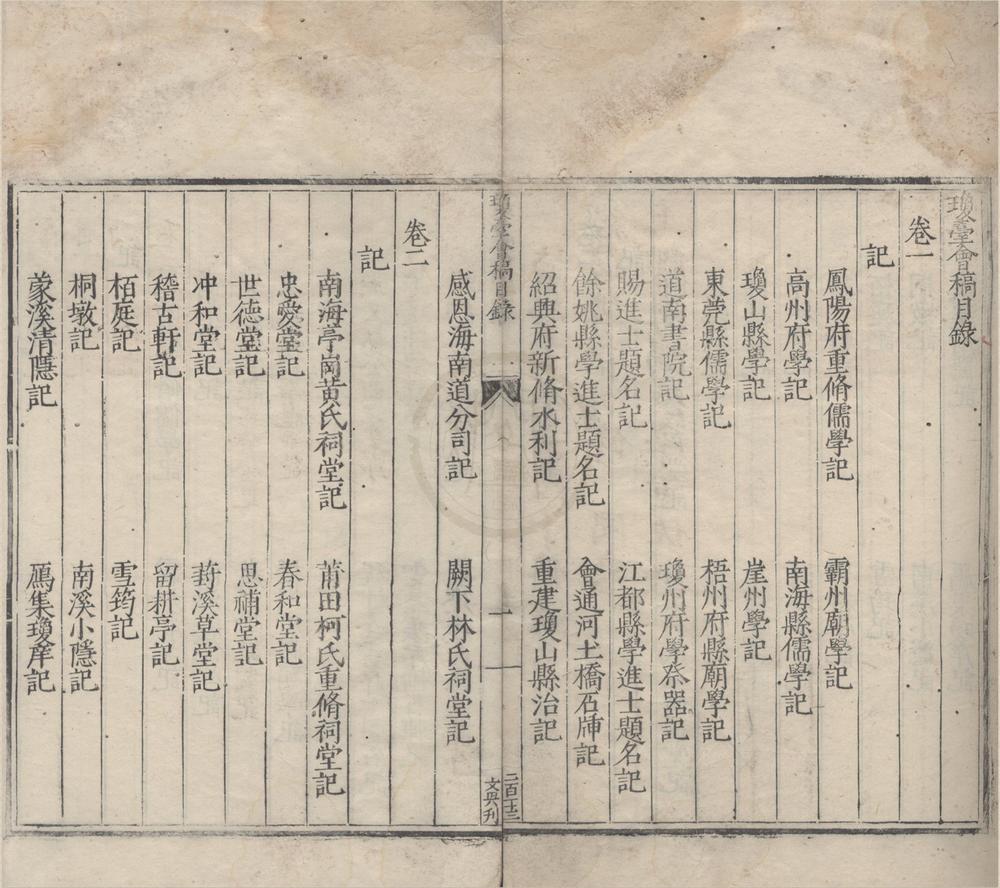 瓊臺會稿目錄
卷一
記
鳳陽府重脩儒學記 霸州廟學記
高州府學記 南海縣儒學記
瓊山縣學記 崖州學記
東莞縣儒學記 梧州府縣廟學記
道南書院記 瓊州府學祭器記
賜進士題名記 江都縣學進士題名記
餘姚縣學進士題名記 會通河土橋石牐記
紹興府新脩水利記 重建瓊山縣治記
瓊臺會稿目錄 一
文兴刊
感恩海南道分司記 闕下林氏祠堂記
卷二
記
南海亭崗黄氏祠堂記 莆田柯氏重脩祠堂記
忠愛堂記 春和堂記
世德堂記 思補堂記
冲和堂記 葑溪草堂記
稽古軒記 留耕亭記
栢庭記 雪筠記
桐墩記 南溪小隱記
蒙溪清隱記 鴈集瓊庠記